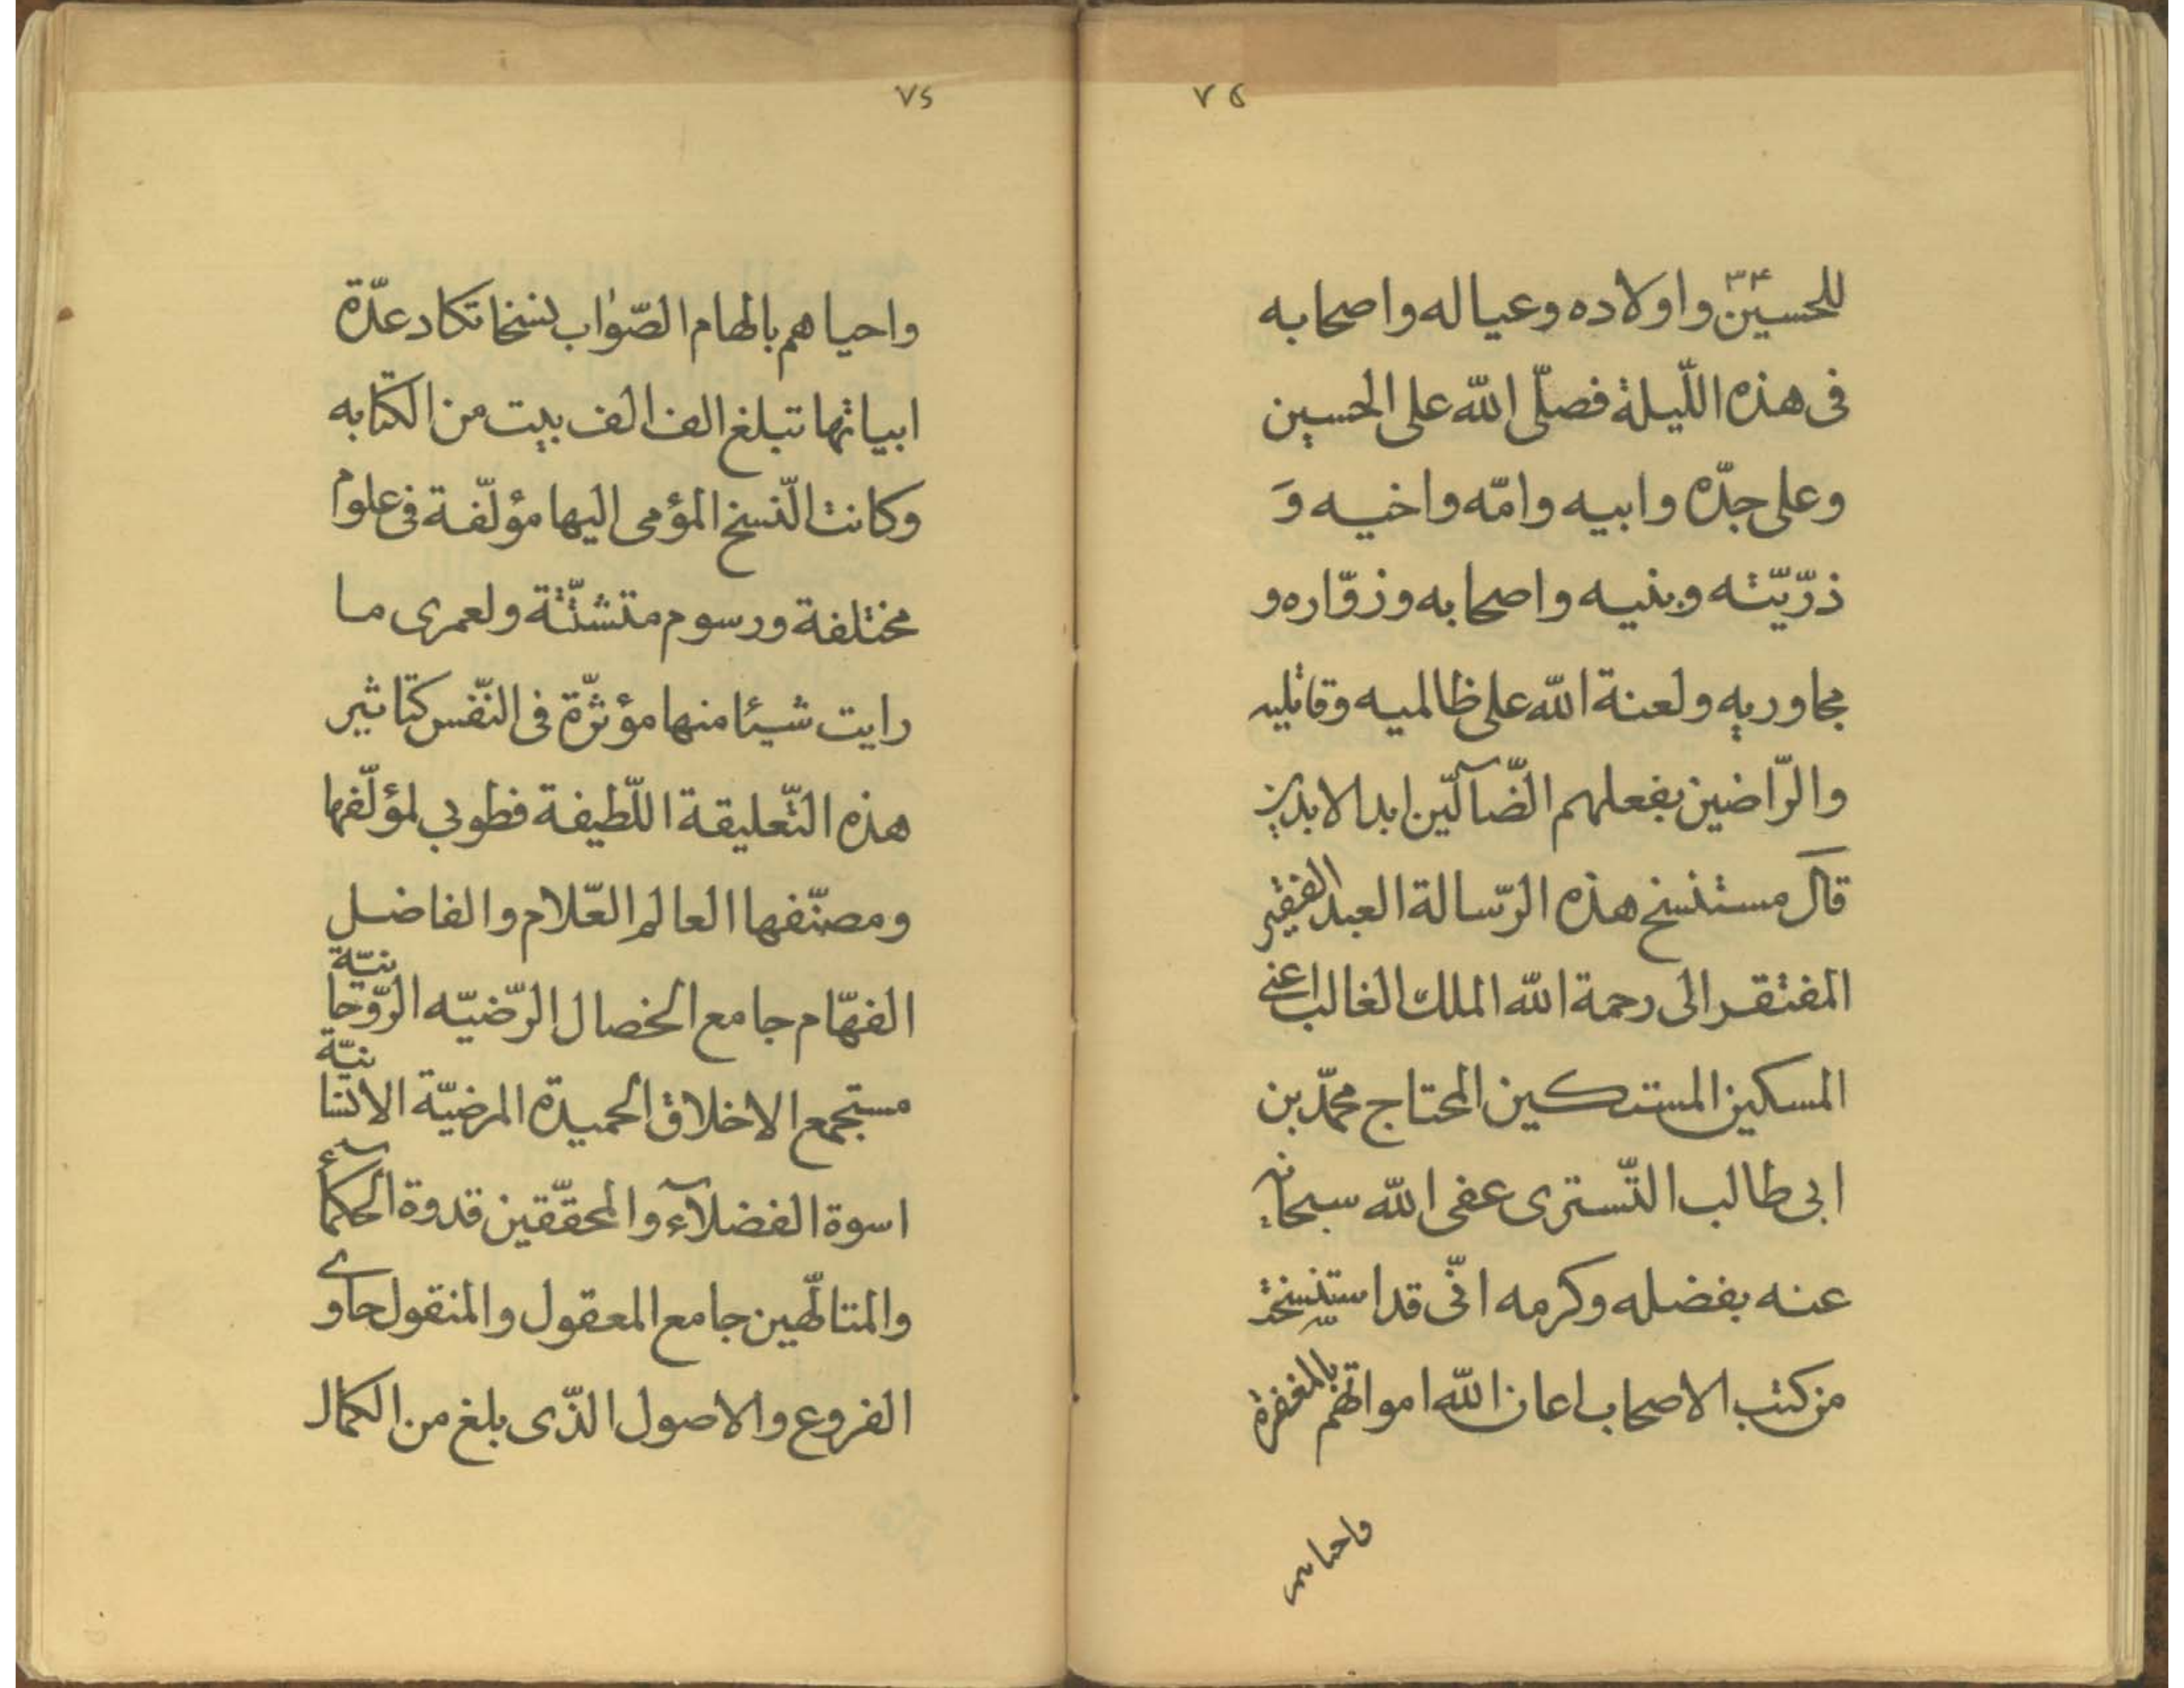 ٧۵
للحسین واولاده وعیاله واصحابه
فی هذه اللّیلة فصلّی الله علی الحسین
وعلی جدّه وابیه وامّه واخیه وَ
ذرّیّته وبنیه واصحابه وزوّاره و
مجاوریه ولعنة الله علی ظالمیه وقاتلیه
والرّاضین بفعلهم الضّآلّین ابد الابدین
قال مستنسخ هذه الرّسالة العبد الفقیر
المفتقر الی رحمة الله الملك الغالب اعنی
المسکین المستکین المحتاج محمّد بن
ابی طالب التّستری عفی الله سبحانه
عنه بفضله وکرمه انّی قد استنسخت
من کتب الاصحاب اعان الله امواتهم بالمغفرة
واحیاهم
٧۶
واحیاهم بالهام الصّواب نسخا تکاد عدّة
ابیاتها تبلغ الف الف بیت من الکتابه
وکانت النّسخ المؤمی الیها مؤلّفة فی علوم
مختلفة ورسوم متشتّتة ولعمری ما
رایت شیئا منها مؤثرّة فی النّفس کتاثیر
هذه التّعلیقة اللّطیفة فطوبی لمؤلّفها
ومصنّفها العالم العّلام والفاضل
الفهّام جامع الخصال الرّضیّه الرّوحانیّة
مستجمع الاخلاق الحمیدة المرضیّة الانسانیّة
اسوة الفضلآء والمحقّقین قدوة الحکمآء
والمتالّهین جامع المعقول والمنقول حاوی
الفروع والاصول الذّی بلغ من الکمال